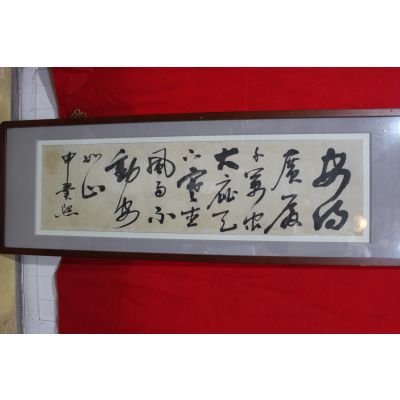 安得
廣廈
千萬間
大庇天
下寒士
風雨不
動安
如山
申翼熙